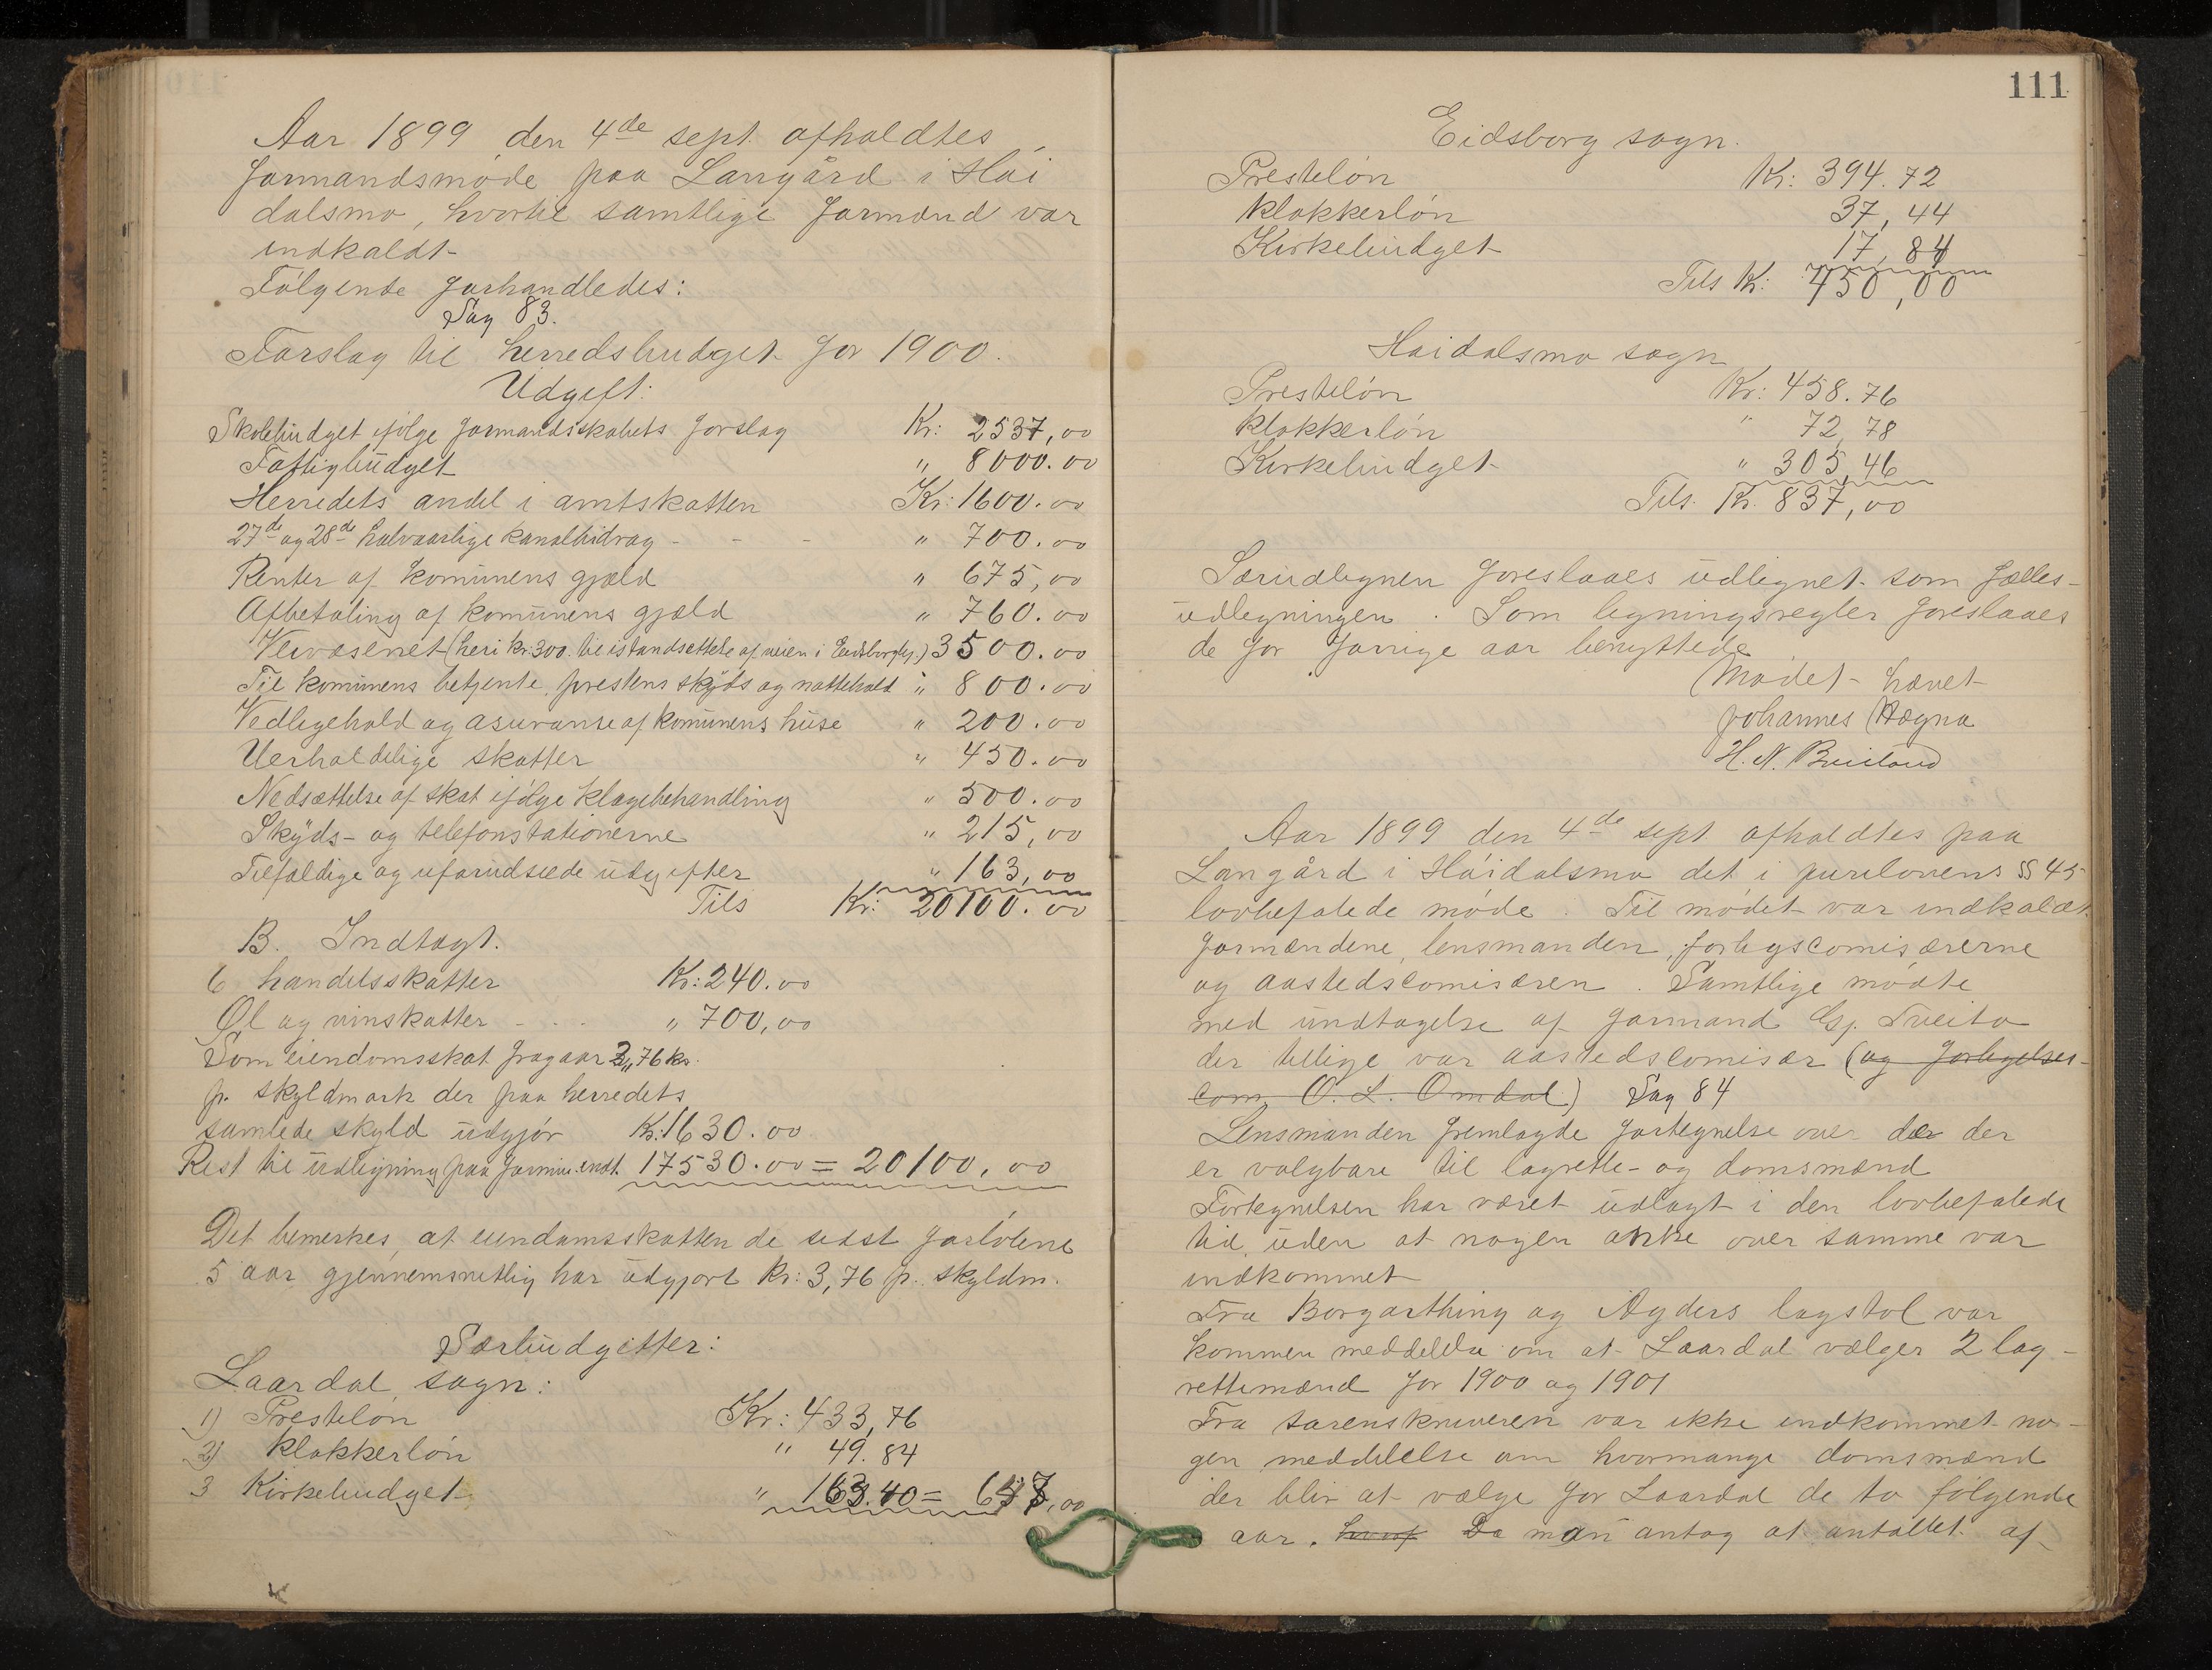 Aar 1899 den 4de sept. afholdtes
formandsmøde paa Langård i Høi
dalsmo, hvortil samtlige formænd var
indkaldt
Følgende forhandledes:
Sag 83.
Forslag til herredsbudget for 1900.
Udgift:
Skolebudget ifølge formandskabets forslag Kr: 2537,00
Fattigbudget " 8000.00
Herredets andel i amtskatten Kr: 1600.00
27de og 28de halvaarlige kanalbidrag - - - " 700.00
Renter af komunens gjæld " 675,00
Afbetaling af komunens gjæld " 760.00
Veivæsenet (heri kr. 300. til istandsettelse af veien i Eidsborg) 3500.00
Til komunens betjente, prestens skyds og nattehold " 800.00
Vedligehold og asuranse af komunens huse " 200.00
Uerholdelige skatter " 450.00
Nedsættelse af skat ifølge klagebehandling " 500.00
Skyds- og telefonstationerne " 215,00
Tilfældige og uforudseede udgifter " 163,00
Tils Kr: 20100.00
B. Indtægt.
6 handelsskatter Kr: 240.00
Øl og vinskatter - - - " 700,00
Som eiendomsskat fragaar 3,76 kr.
p. skyldmark der paa herredets
samlede skyld udgjør Kr: 1630.00
Rest til udligning paa formue. indt. 17530.00 = 20100,00
Det bemerkes, at eiendomsskatten de sidst forløbne
5 aar gjennemsnitlig har udgjort kr: 3,76 p. skyldm.
Særbudgetter:
Laardal sogn:
1) Presteløn Kr: 433,76
2) Klokkerløn " 49.84
3 Kirkebudget " 163.40 = 647,00
111
Eidsborg sogn.
Presteløn Kr: 394.72
Klokkerløn 37,44
Kirkebudget 17,84
Tils Kr: 450,00
Høidalsmo sogn
Presteløn Kr: 458.76
Klokkerløn " 72,78
Kirkebudget " 305,46
Tils. Kr. 837,00
Særudlignen foreslaaes udlignet som fælles-
udligningen. Som ligningsregler foreslaaes
de for forrige aar benyttede
Mødet hævet
Johannes Høgna
H. N. Builand
Aar 1899 den 4de sept afholdtes paa
Langård i Høidalsmo det i jurilovens §§ 45
lovbefalede møde. Til mødet var indkaldt
formændene, lensmanden, forligscomisærerne
og aastedscomisæren. Samtlige mødte
med undtagelse af formand Gsj. Tveito
der tillige var aastedscomisær (og forligelses-
com. O. L. Omdal) Sag 84
Lensmanden fremlagde fortegnelse over der der
er valgbare til lagrette- og domsmænd
Fortegnelsen har været udlagt i den lovbefalede
tid, uden at nogen anke over samme var
indkommet
Fra Borgarthing og Agders lagstol var
kommen meddelelse om at Laardal vælger 2 lag-
rettemænd for 1900 og 1901
Fra sorenskriveren var ikke indkommet no-
gen meddelelse om hvormange domsmænd
der blir at vælge for Laardal de to følgende
aar. Da man antog at antallet af